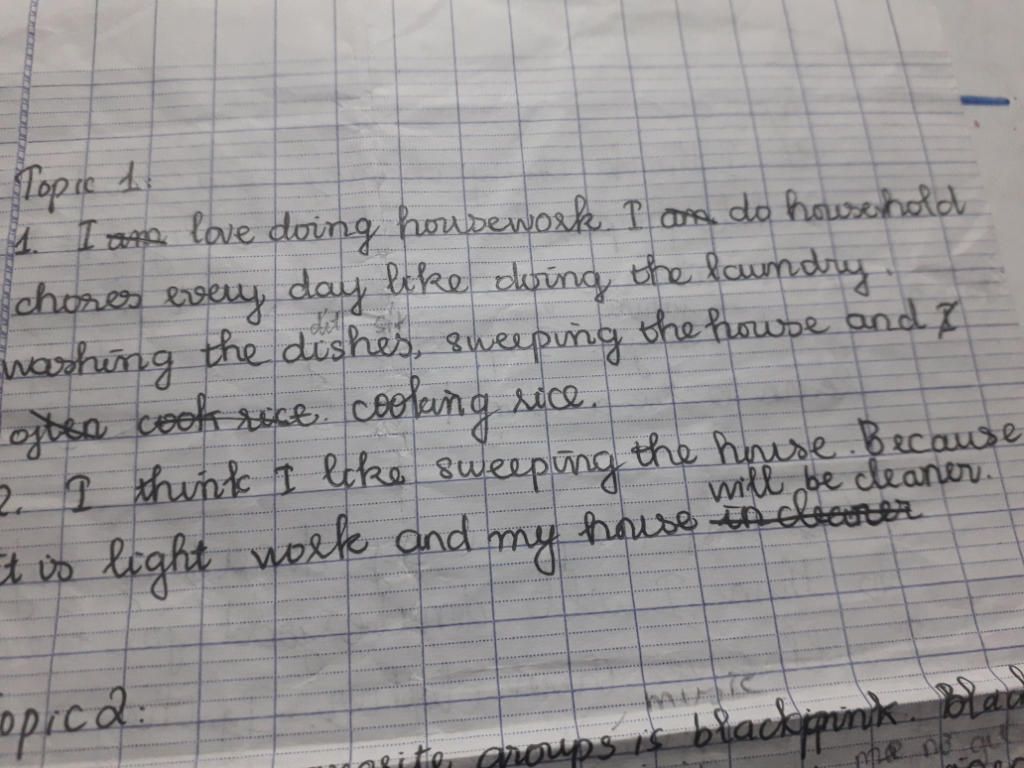 Topic 1:
1. I am love doing housework. I am do household
chores every day like doing the laundry.
washing the dishes, sweeping the house and I
often cook rice. cooking rice.
2. I think I like sweeping the house. Because
will be cleaner.
it is light work and my house is cleaner
opic 2:
music
groups is blackpink. Blac